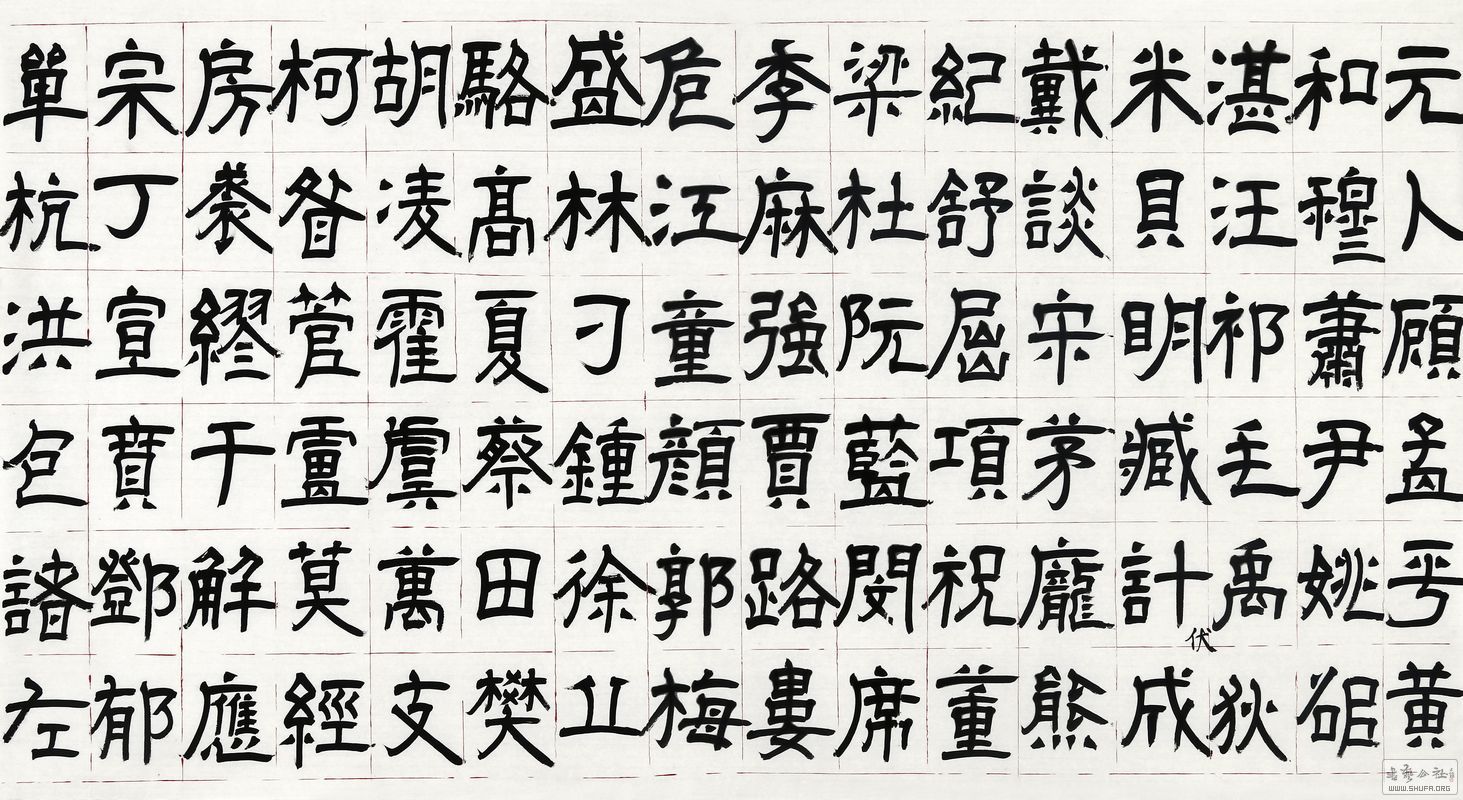 元卜顧孟平黃
和穆蕭尹姚邵
湛汪祁毛禹狄
米貝明臧計伏成
戴談宋茅龐熊
紀舒屈項祝董
梁杜阮藍閔席
季麻強賈路婁
危江童顏郭梅
盛林刁鍾徐丘
駱髙夏蔡田樊
胡凌霍虞萬支
柯昝管盧莫經
房裘繆干解應
宗丁宣賁鄧郁
單杭洪包諸左
書藝公社
WWW.SHUFA.ORG